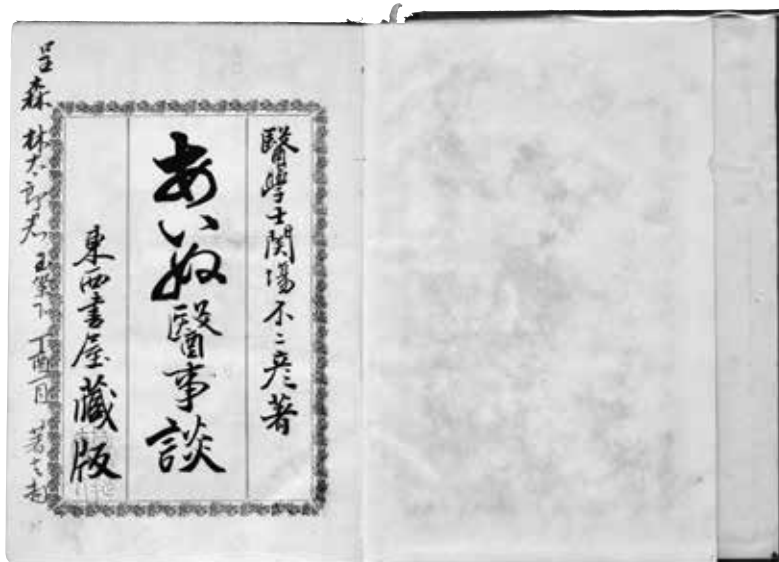 醫學士関場不二彦著
あいぬ醫事談
東西書屋藏版
呈森林太郎君 玉案下 丁酉一月 著